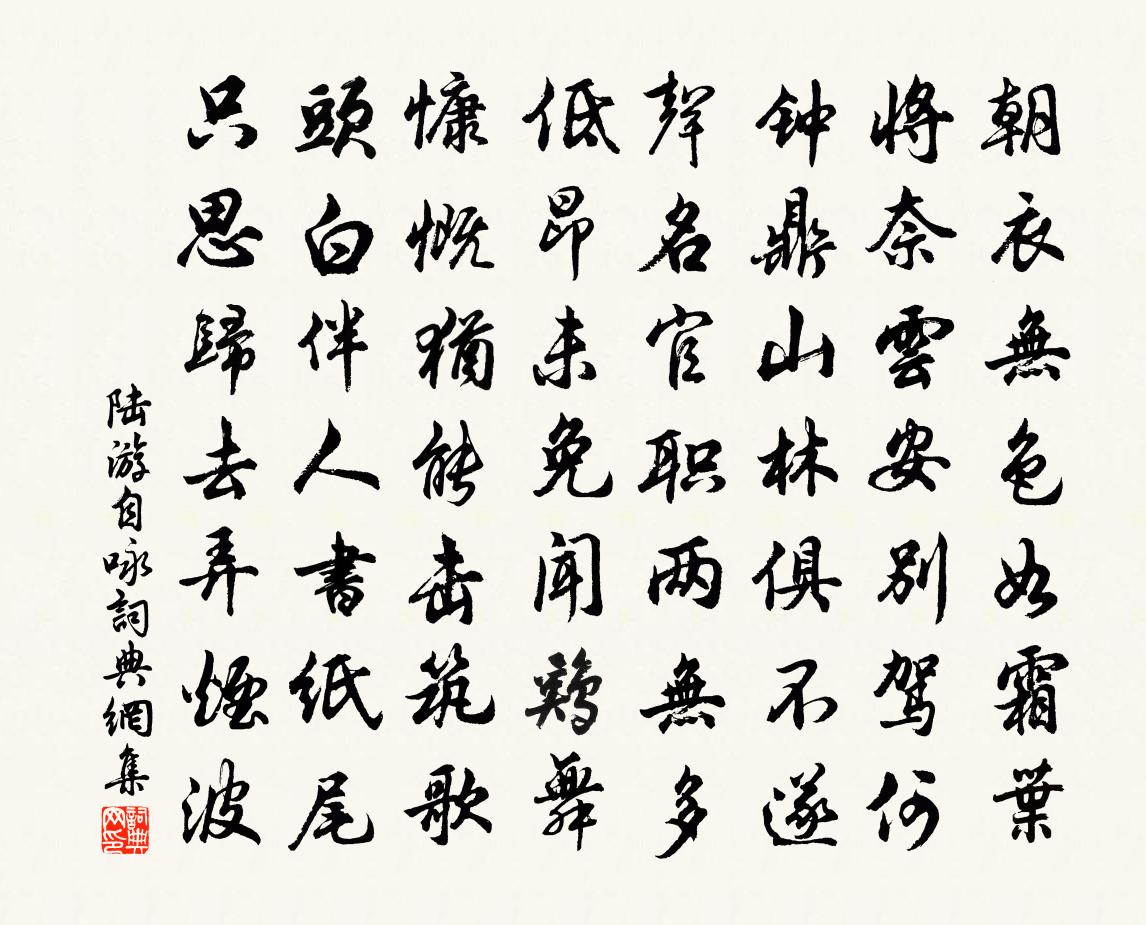 朝衣無色如霜葉
將奈雲安別駕何
钟鼎山林俱不遂
聲名官职两無多
低昂未免聞鷄舞
慷慨猶能击筑歌
頭白伴人書紙尾
只思歸去弄煙波
陆游自咏詞典網集
詞典网印